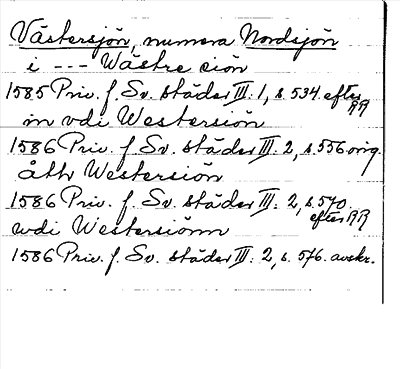 Västersjön, numera Nordsjön
i --- Wästre siön
1585 Priv. f. Sv. städer III: 1, s. 534. efter RR
in vdi Westersiön
1586 Priv. f. Sv. städer III: 2, s. 556 orig.
åth Westersiön
1586 Priv. f. Sv. städer III: 2, s. 570. efter RR
wdi Westersiönn
1586 Priv. f. Sv. städer III: 2, s. 576. avskr.